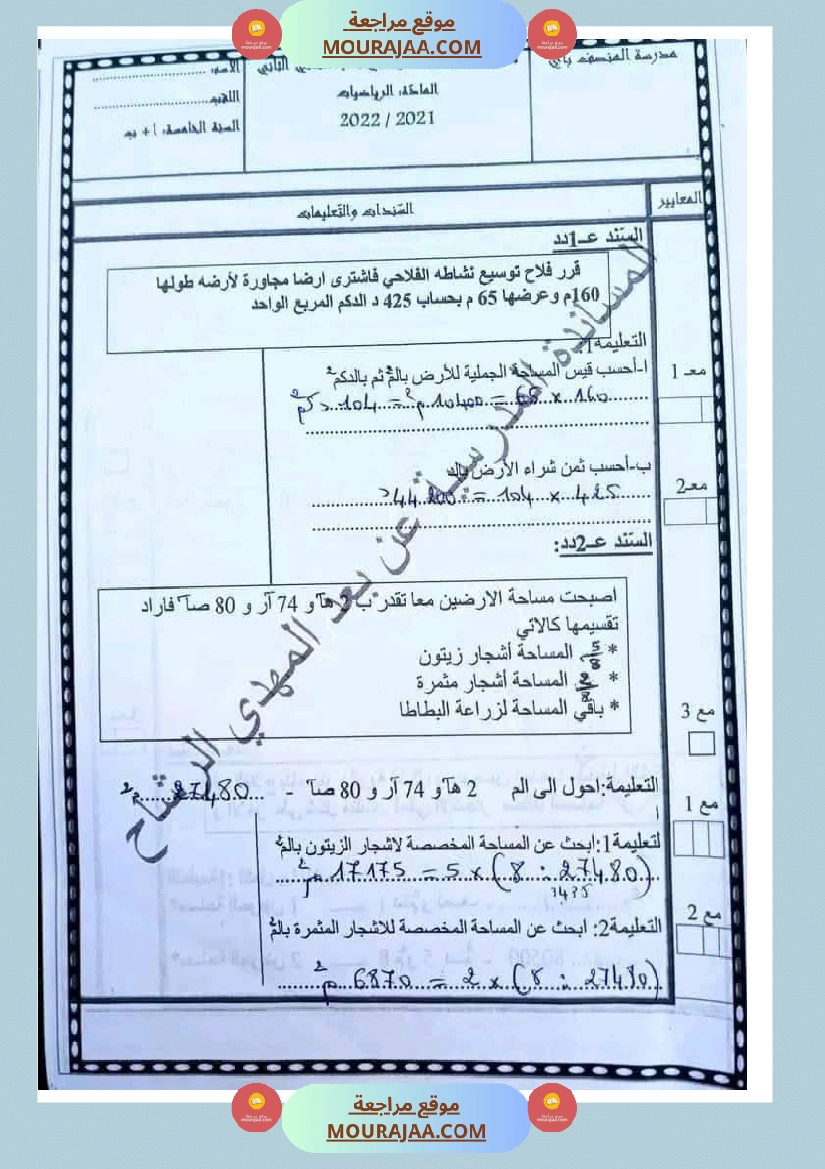 موقع مراجعة
MOURAJAA.COM
مدرسة المنصف باي
الثاني
المادة: الرياضيات
2022 / 2021
الاسم: ....................
اللقب.........................
السنة الخامسة: أ + ب
المعايير
السندات والتعليمات
السند عـ1ـدد
قرر فلاح توسيع نشاطه الفلاحي فاشترى ارضا مجاورة لأرضه طولها
160م وعرضها 65 م بحساب 425 د الدكم المربع الواحد
التعليمة1:
معـ 1
ا-أحسب قيس المساحة الجملية للأرض بالم² ثم بالدكم²
160 × 65 = 10400 م² = 104 دكم²
معـ2
ب-أحسب ثمن شراء الأرض بالد
425 × 104 = 44200 د
السند عـ2ـدد:
اصبحت مساحة الارضين معا تقدر ب 2 هآ و 74 آر و 80 صآ فاراد
تقسيمها كالاتي
* 5/8 المساحة أشجار زيتون
* 2/8 المساحة أشجار مثمرة
* باقي المساحة لزراعة البطاطا
مع 3
التعليمة:احول الى الم² 2 هآ و 74 آر و 80 صآ - 27480 م²
مع 1
لتعليمة1:ابحث عن المساحة المخصصة لاشجار الزيتون بالم²
(27480 : 8) × 5 = 17175 م²
3435
مع 2
التعليمة2: ابحث عن المساحة المخصصة للاشجار المثمرة بالم²
(27480 : 8) × 2 = 6870 م²
المساندة المدرسية عن بعد المهدي الرشاح
موقع مراجعة
MOURAJAA.COM